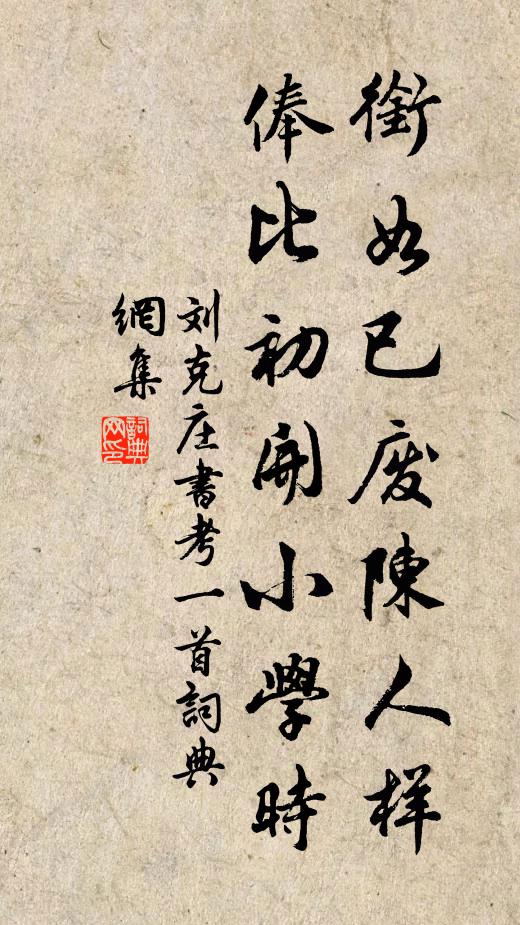 銜如已废陳人样
俸比初開小學時
刘克庄書考一首詞典
網集
詞典
网印